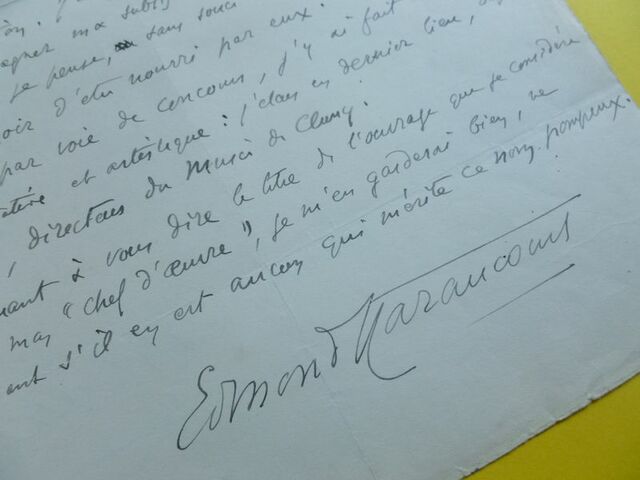 agner ma subsis
je pense, sans souci
oir d'être nourri par eux.
par voie de concours, j'y ai fait
et artistique : j'étais en dernier lieu,
directeur du Musée de Cluny.
quant à vous dire le titre de l'ouvrage que je considère
mon "chef d'œuvre", je m'en garderai bien, ne
ent s'il en est aucun qui mérite ce nom pompeux.
Edmond Haraucourt